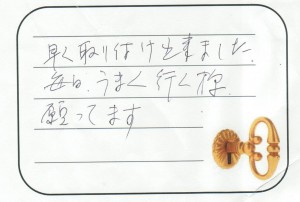 早く取り付け出来ました。
毎日、うまく行く様、
願ってます